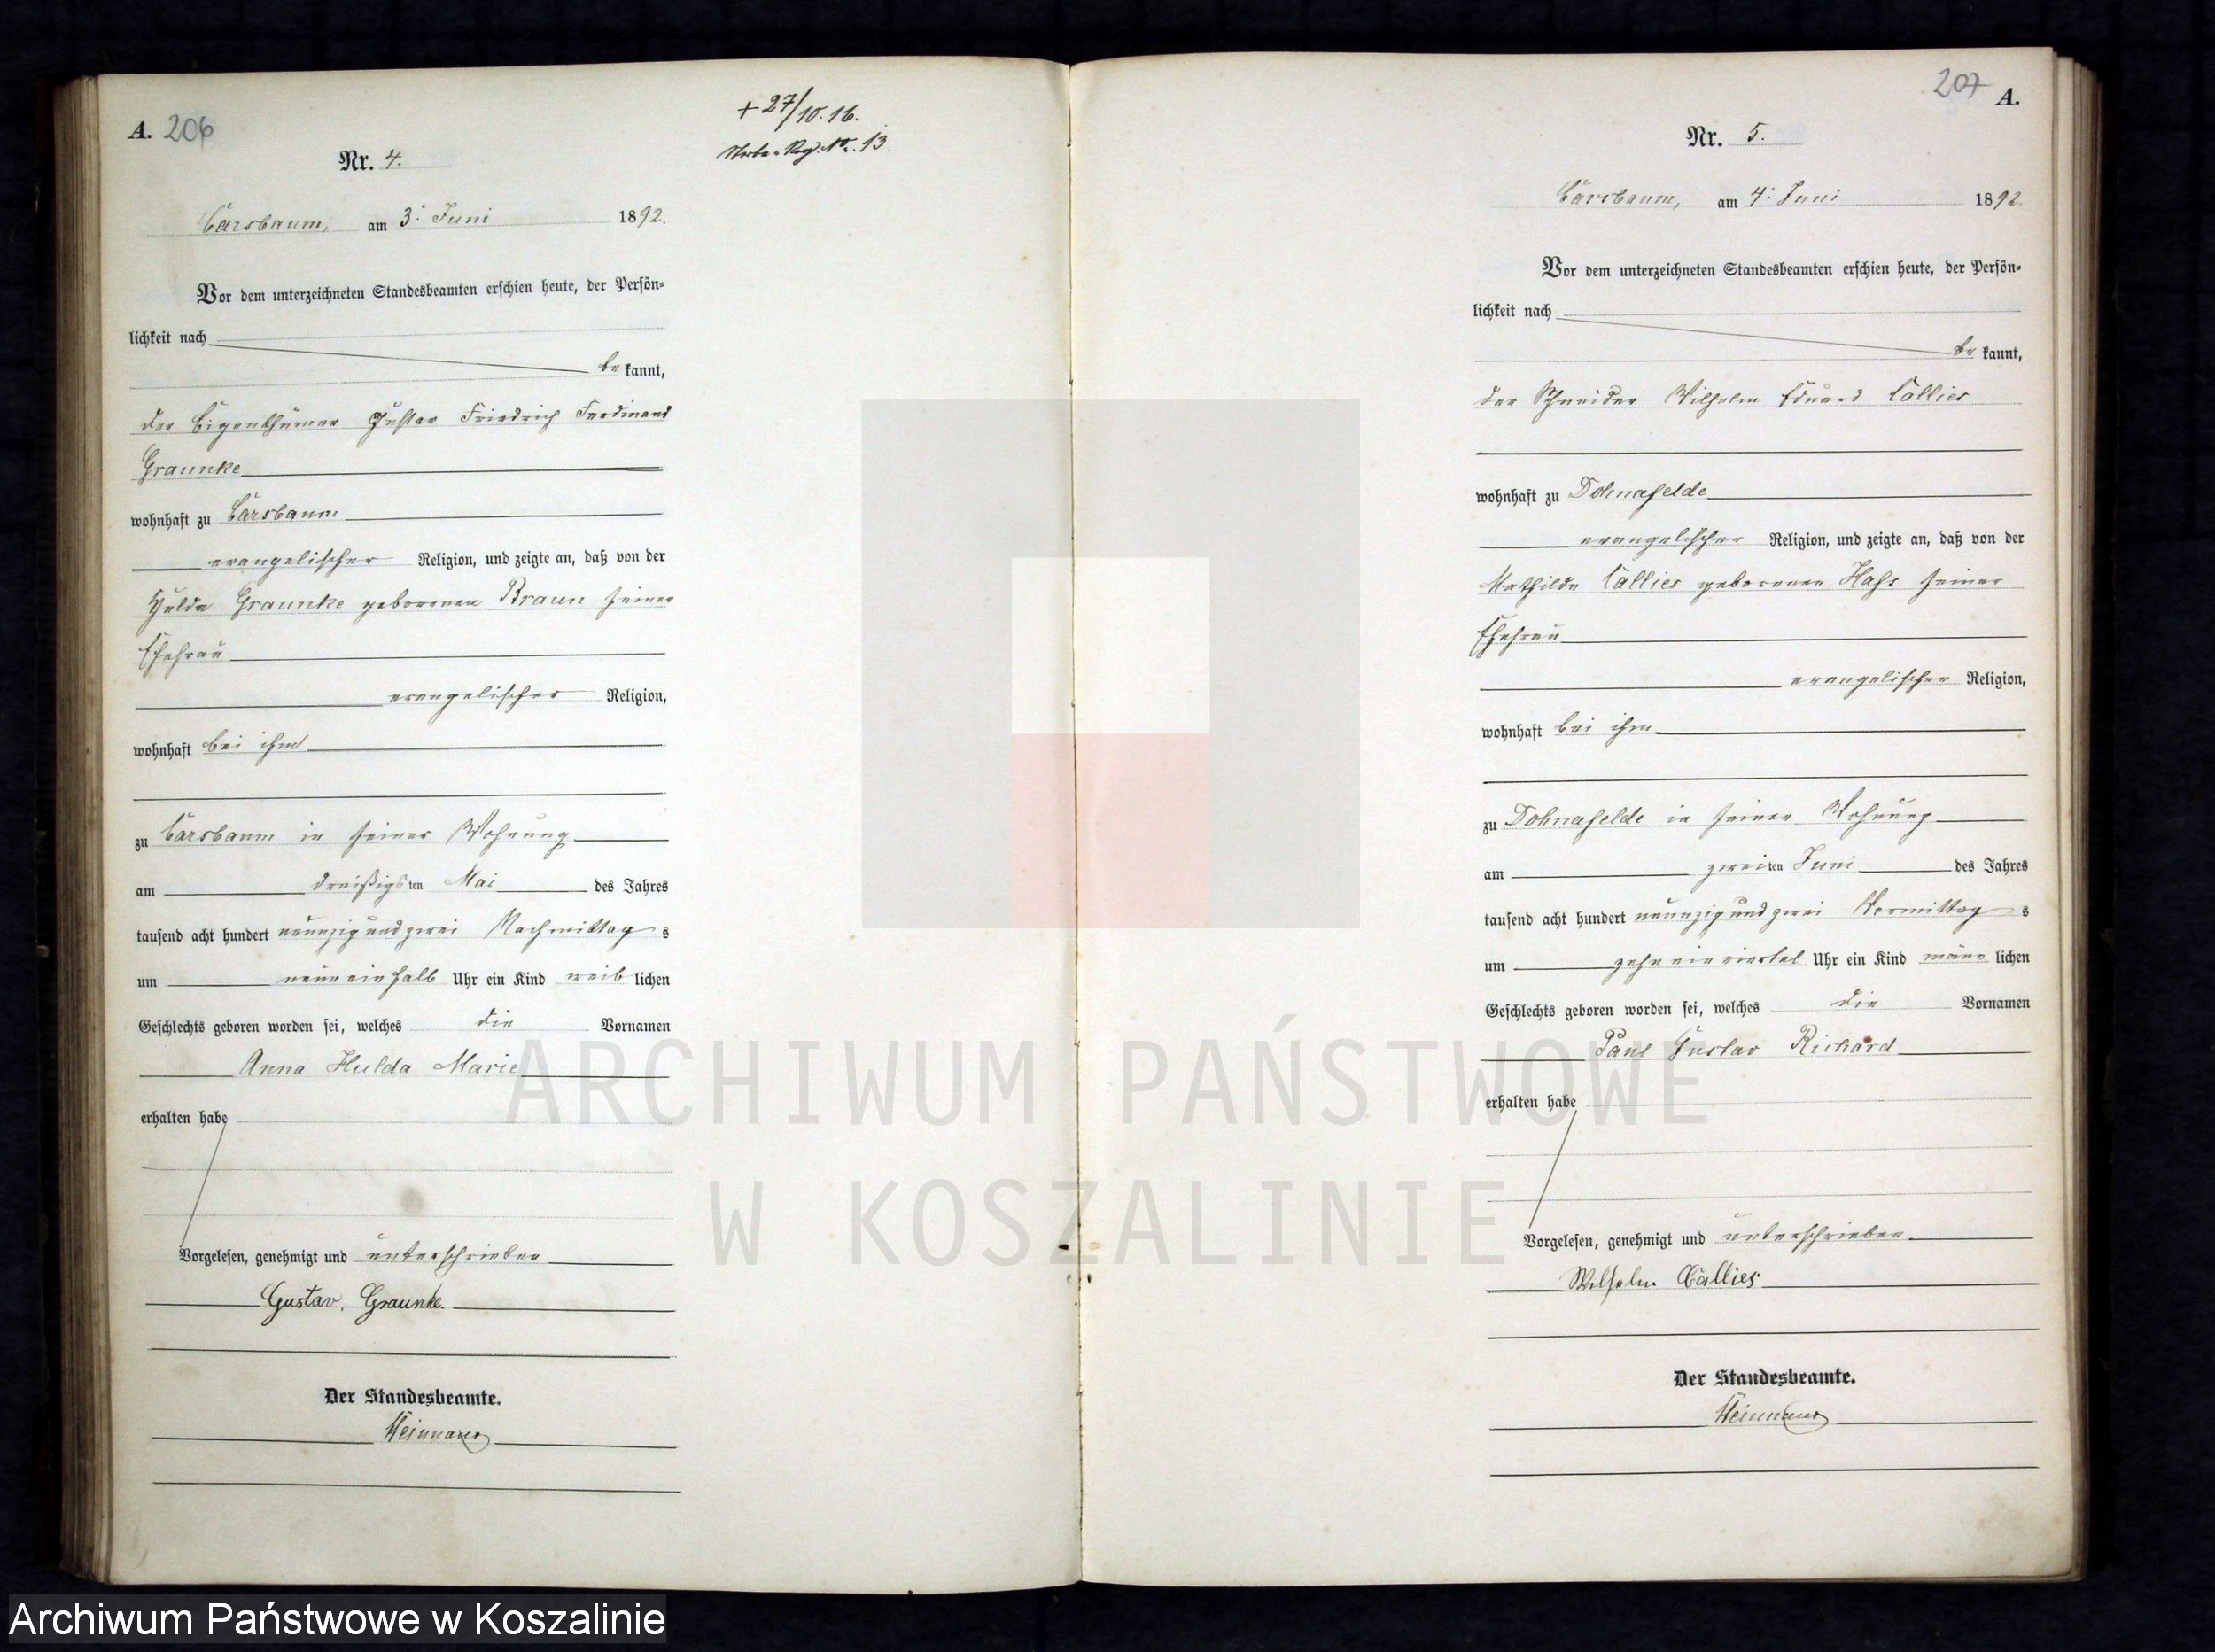 A. 206
Nr. 4.
+ 27/10. 16.
Sterbe-Reg. No. 13.
Carsbaum, am 3. Juni 1892.
Vor dem unterzeichneten Standesbeamten erschien heute, der Persön-
lichkeit nach
be kannt,
der Eigenthümer Gustav Friedrich Ferdinand
Graunke
wohnhaft zu Carsbaum
evangelischer Religion, und zeigte an, daß von der
Hulda Graunke geborenen Braun seiner
Ehefrau
evangelischer Religion,
wohnhaft bei ihm
zu Carsbaum in seiner Wohnung
am dreißigsten Mai des Jahres
tausend acht hundert neunzig und zwei Nachmittags
um neun ein halb Uhr ein Kind weiblichen
Geschlechts geboren worden sei, welches die Vornamen
Anna Hulda Marie
erhalten habe
Vorgelesen, genehmigt und unterschrieben
Gustav. Graunke.
Der Standesbeamte.
207 A.
Nr. 5.
Carsbaum, am 4. Juni 1892.
Vor dem unterzeichneten Standesbeamten erschien heute, der Persön-
lichkeit nach
be kannt,
der Schneider Wilhelm Eduard Callies
wohnhaft zu Dohnafelde
evangelischer Religion, und zeigte an, daß von der
Mathilde Callies geborenen Hass seiner
Ehefrau
evangelischer Religion,
wohnhaft bei ihm
zu Dohnafelde in seiner Wohnung
am zweiten Juni des Jahres
tausend acht hundert neunzig und zwei Vormittags
um zehn ein viertel Uhr ein Kind männlichen
Geschlechts geboren worden sei, welches die Vornamen
Paul Gustav Richard
erhalten habe
Vorgelesen, genehmigt und unterschrieben
Wilhelm Callies
Der Standesbeamte.
ARCHIWUM PAŃSTWOWE
W KOSZALINIE
Archiwum Państwowe w Koszalinie